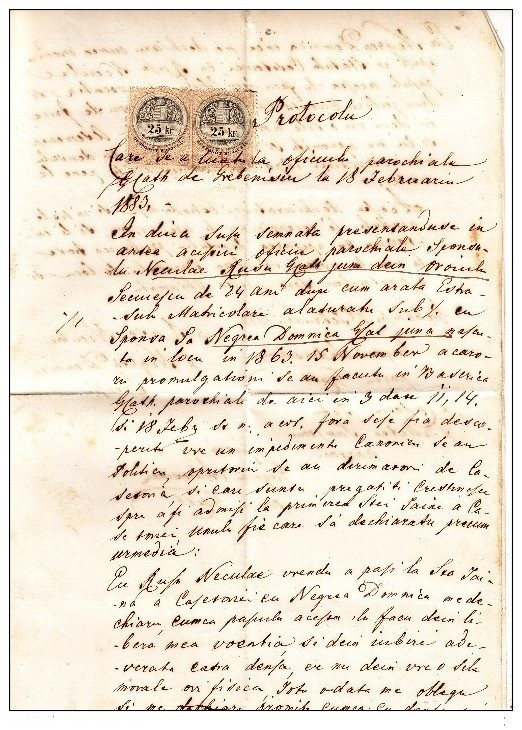 25 kr 25 kr
Protocolu
Care se a luatu la oficiulu parochialu
G. Cath. de Grebenisiu la 18 Februariu
1883,
In diua supˢ semnata presentanduse in
antea acestui oficiu parochialu Sponsu-
lu Neculae Rusu G. Cath. june dein Oroiulu
Secuiescu de 24 ani dupe cum arata Estra-
sulu Matricolare alaturatu sub ·/. cu
·/.
Sponsa Sa Negrea Domnica G. Cat. juna nascu-
ta in locu in 1863. 15 November a caro-
ru promulgationi se au facutu in Baserica
G. Cath. parochiale de aici in 3 date 11, 14.
si 18 Feby. st. n. a. c., fora se se fia desco-
peritu vre un impedimentu Canonicu seau
Politicu opritoriu seau dirimatoriu de Ca-
setoria, si care suntu pregatiti Crestinesce
spre a fi admisi la primirea Stei Taine a Ca-
setoriei. Unulu fie care sa dechiaratu precum
urmedia:
Eu Rusu Neculae vrendu a pasi la Sta Tai-
na a Casetoriei cu Negrea Domnica me de-
chiaru cumca pasulu acestu ilu facu dein li-
bera mea voentia si dein iubire ade-
verata catra densa, er nu dein vre o sila
morale ori fisica, Totu odata me oblegu
si me promitu cumca cu